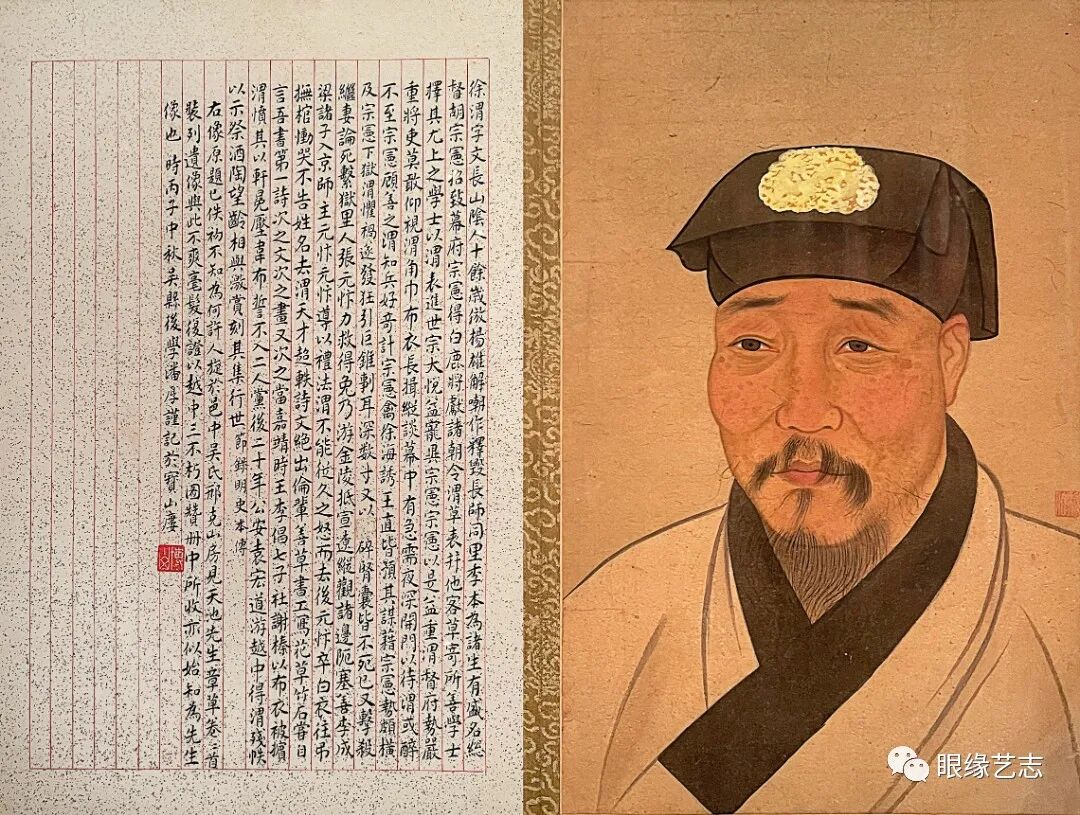 徐渭字文長山陰人十餘歲倣楊雄解嘲作釋毀長師同里季本為諸生有盛名總
督胡宗憲招致幕府宗憲得白鹿將獻諸朝令渭草表并他客草寄所善學士
擇其尤上之學士以渭表進世宗大悅益寵異宗憲宗憲以是益重渭督府勢嚴
重將吏莫敢仰視渭角巾布衣長揖縱談幕中有急需夜深開門以待渭或醉
不至宗憲顧善之渭知兵好奇計宗憲禽徐海誘王直皆預其謀藉宗憲勢頗橫
及宗憲下獄渭懼禍遂發狂引巨錐剚耳深數寸又以 碎腎囊皆不死已又擊殺
繼妻論死繫獄里人張元忭力救得免乃游金陵抵宣遼縱觀諸邊阨塞善李成
梁諸子入京師主元忭元忭導以禮法渭不能從久之怒而去後元忭卒白衣往弔
撫棺慟哭不告姓名去渭天才超軼詩文絕出倫輩善草書工寫花草竹石嘗自
言吾書第一詩次之文次之畫又次之當嘉靖時王李倡七子社謝榛以布衣被擯
渭憤其以軒冕壓韋布誓不入二人黨後二十年公安袁宏道游越中得渭殘帙
以示祭酒陶望齡相與激賞刻其集行世 節錄明史本傳
右像原題已佚初不知為何許人旋於邑中吳氏 山房見天也先生章草卷首
裝列遺像與此不爽毫髮復證以越中三不朽圖贊冊中所收亦似始知為先生
像也 時丙子中秋吳縣後學潘厚謹記於寶山廔
眼缘艺志